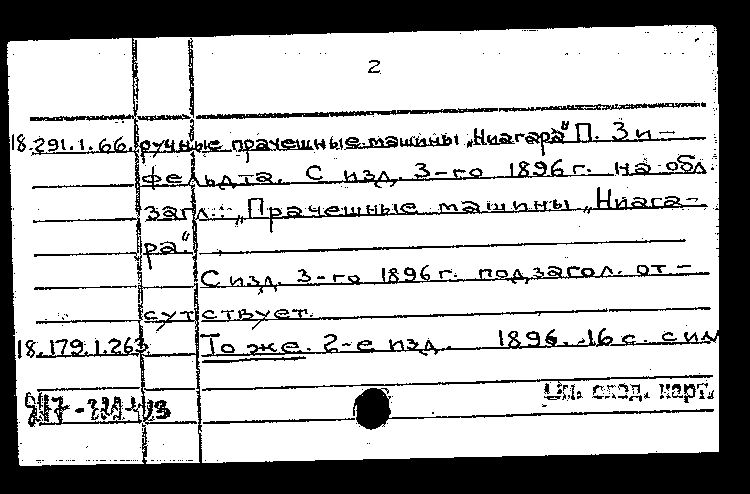 2
18.291.1.66. ручные прачешные машины „Ниагара“ П. Зи-
фельдта. С изд. 3-го 1896 г. на обл.
загл.: „Прачешные машины „Ниага-
ра“.
С изд. 3-го 1896 г. подзагол. от-
сутствует.
18.179.1.263 То же. 2-е изд. 1896. 16 с. с ил
См. след. карт.